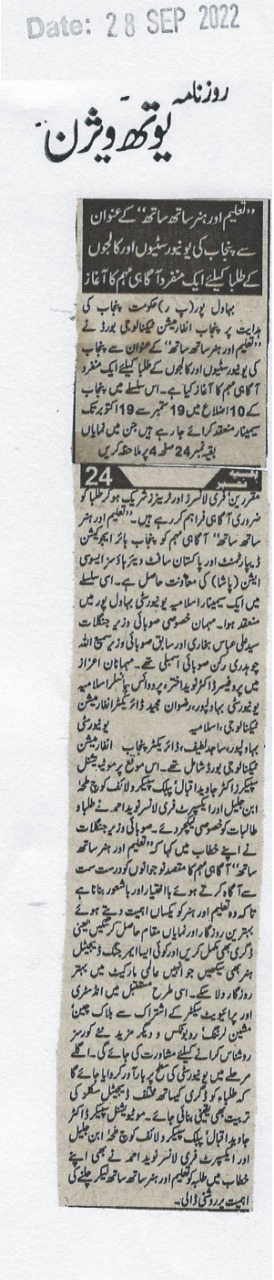 Date: 28 SEP 2022
روزنامہ
یوتھ ویژن
"تعلیم اور ہنر ساتھ ساتھ" کے عنوان
سے پنجاب کی یونیورسٹیوں اور کالجوں
کے طلبا کیلئے ایک منفرد آگاہی مہم کا آغاز
بہاول پور (پ ر) حکومت پنجاب کی
ہدایت پر پنجاب انفارمیشن ٹیکنالوجی بورڈ نے
"تعلیم اور ہنر ساتھ ساتھ" کے عنوان سے پنجاب
کی یونیورسٹیوں اور کالجوں کے طلبا کیلئے ایک منفرد
آگاہی مہم کا آغاز کیا ہے۔ اس سلسلے میں پنجاب
کے 10 اضلاع میں 19 ستمبر سے 19 اکتوبر تک
سیمینار منعقد کرائے جا رہے ہیں جن میں نمایاں
بقیہ نمبر 24 صفحہ 4 پر ملاحظہ کریں
بقیہ نمبر 24
مقررین، فری لانسرز اور ٹرینرز شریک ہو کر طلبا کو
ضروری آگاہی فراہم کر رہے ہیں۔ "تعلیم اور ہنر
ساتھ ساتھ" آگاہی مہم کو پنجاب ہائر ایجوکیشن
ڈیپارٹمنٹ اور پاکستان سافٹ ویئر ہاؤسز ایسوسی
ایشن (پاشا) کی معاونت حاصل ہے۔ اسی سلسلے
میں ایک سیمینار اسلامیہ یونیورسٹی بہاول پور میں
منعقد ہوا۔ مہمان خصوصی صوبائی وزیر جنگلات
سید علی عباس بخاری اور سابق صوبائی وزیر سمیع اللہ
چوہدری رکن صوبائی اسمبلی تھے۔ مہمانان اعزاز
میں پروفیسر ڈاکٹر نوید اختر، پرو وائس چانسلر اسلامیہ
یونیورسٹی بہاولپور، رضوان مجید ڈائریکٹر انفارمیشن
ٹیکنالوجی، اسلامیہ یونیورسٹی
بہاولپور، ساجد لطیف، ڈائریکٹر پنجاب انفارمیشن
ٹیکنالوجی بورڈ شامل تھے۔ اس موقع پر موٹیویشنل
سپیکرز ڈاکٹر جاوید اقبال، پبلک سپیکر و لائف کوچ طحہٰ
ابن جلیل اور ایکسپرٹ فری لانسر نوید احمد نے طلبا و
طالبات کو خصوصی لیکچر دیے۔ صوبائی وزیر جنگلات
نے اپنے خطاب میں کہا کہ "تعلیم اور ہنر ساتھ
ساتھ" آگاہی مہم کا مقصد نوجوانوں کو درست سمت
سے آگاہ کرتے ہوئے بااختیار اور باشعور بنانا ہے
تاکہ وہ تعلیم اور ہنر کو یکساں اہمیت دیتے ہوئے
بہترین روزگار اور نمایاں مقام حاصل کر سکیں یعنی
ڈگری بھی مکمل کریں اور کوئی ایسا ایمرجنگ ڈیجیٹل
ہنر بھی سیکھیں جو انہیں عالمی مارکیٹ میں بہتر
روزگار دلا سکے۔ اسی طرح مستقبل میں انڈسٹری
اور پرائیویٹ سیکٹر کے اشتراک سے بلاک چین،
مشین لرننگ، روبوٹکس و دیگر مزید نئے کورسز
روشناس کرانے کیلئے مشاورت کی جائے گی۔ اگلے
مرحلے میں یونیورسٹی کی سطح پر باور کروایا جائے گا
کہ طلباء کو ڈگری کیساتھ مختلف ڈیجیٹل سکلز کی
تربیت بھی یقینی بنائی جائے۔ موٹیویشنل سپیکر ڈاکٹر
جاوید اقبال، پبلک سپیکر و لائف کوچ طحہٰ ابن جلیل
اور ایکسپرٹ فری لانسر نوید احمد نے بھی اپنے
خطاب میں طلبہ کو تعلیم اور ہنر ساتھ ساتھ لیکر چلنے کی
اہمیت پر روشنی ڈالی۔